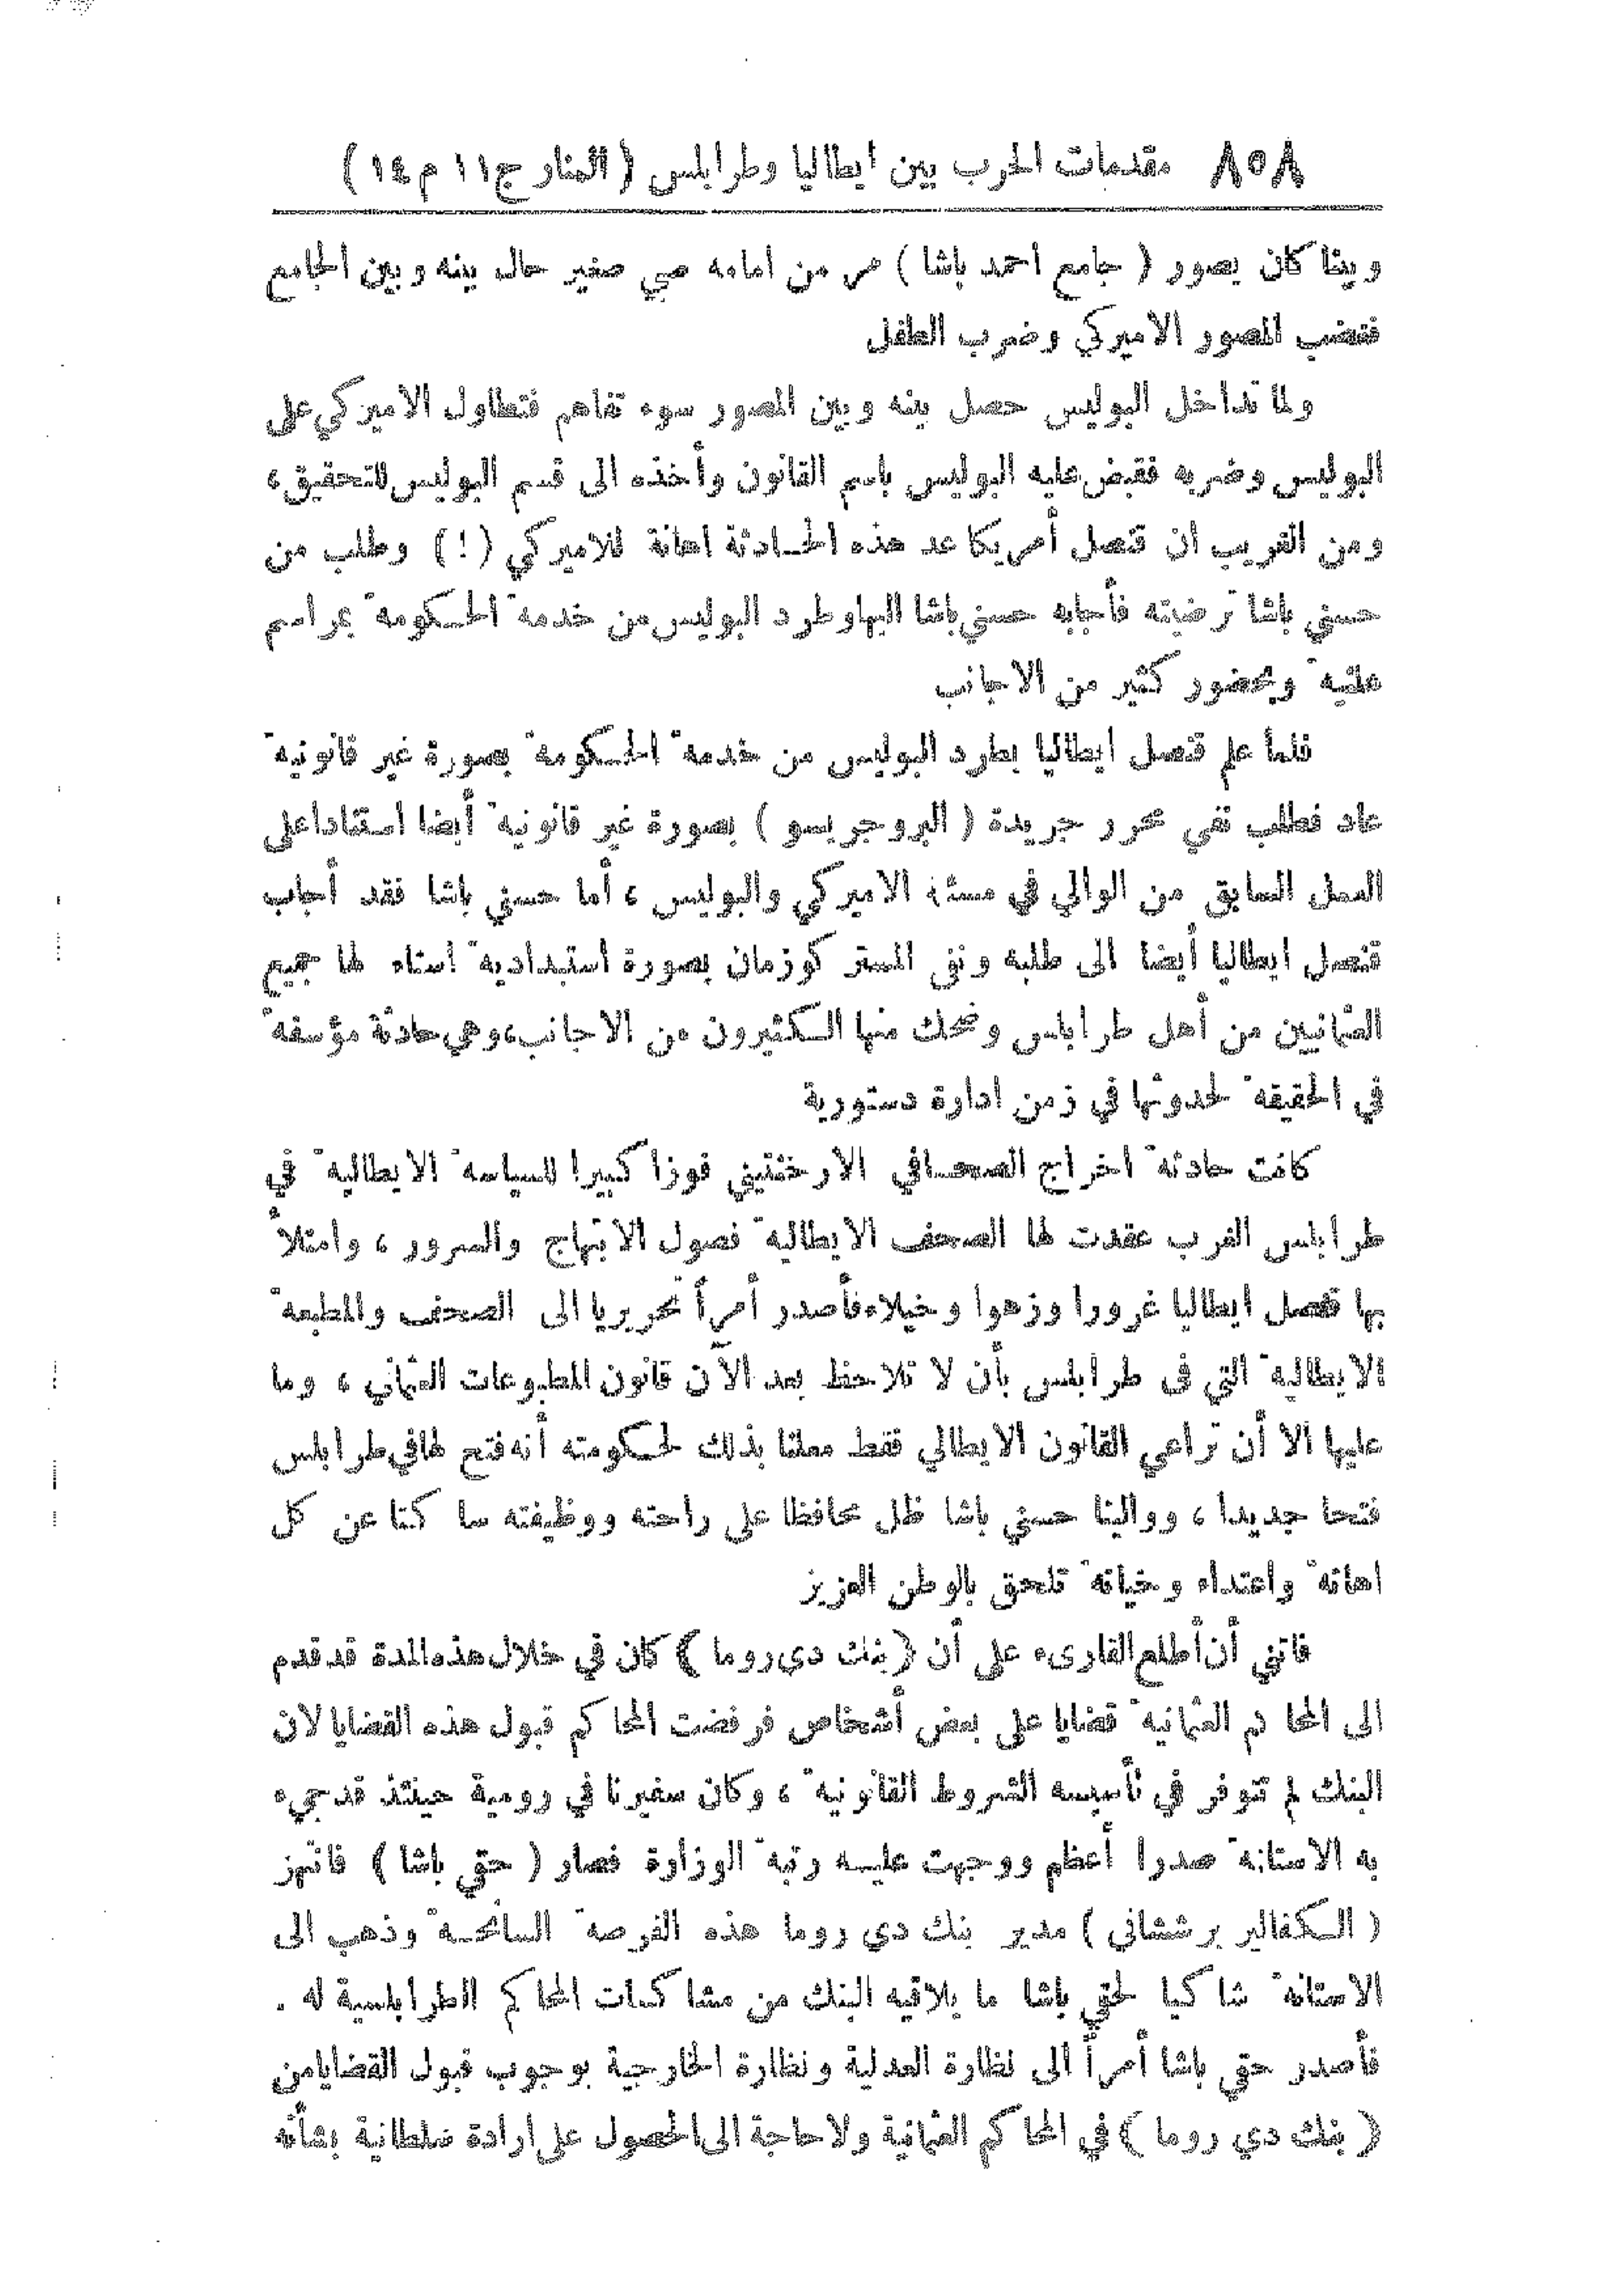 ٨٥٨ مقدمات الحرب بين ايطاليا وطرابلس (المنار ج١١ م١٤)
وبينا كان يصور ( جامع احمد باشا ) مر من امامه صبي صغير حال بينه وبين الجامع
فغضب المصور الاميركي وضرب الطفل
ولما تداخل البوليس حصل بينه وبين المصور سوء تفاهم فتطاول الاميركي على
البوليس وضربه فقبض عليه البوليس باسم القانون وأخذه الى قسم البوليس للتحقيق ،
ومن الغريب ان قنصل أمريكا عد هذه الحادثة اهانة للاميركي (!) وطلب من
حسني باشا ترضيته فأجابه حسني باشا اليها وطرد البوليس من خدمة الحكومة بمراسم
علنية وبحضور كثير من الاجانب
فلما علم قنصل ايطاليا بطرد البوليس من خدمة الحكومة بصورة غير قانونية
عاد فطلب نفي محرر جريدة ( البروجريسو ) بصورة غير قانونية أيضا استنادا على
العمل السابق من الوالي في مسئلة الاميركي والبوليس ، أما حسني باشا فقد أجاب
قنصل ايطاليا أيضا الى طلبه ونفى المستر كوزمان بصورة استبدادية استاء لها جميع
العثمانيين من أهل طرابلس وضحك منها الكثيرون من الاجانب، وهي حادثة مؤسفة
في الحقيقة لحدوثها في زمن ادارة دستورية
كانت حادثة اخراج الصحافي الارجنتيني فوزا كبيرا للسياسة الايطالية في
طرابلس الغرب عقدت لها الصحف الايطالية فصول الابتهاج والسرور ، وامتلأ
بها قنصل ايطاليا غرورا وزهوا وخيلاء فأصدر أمرأ تحريريا الى الصحف والمطبعة
الايطالية التي فى طرابلس بأن لا تلاحظ بعد الآن قانون المطبوعات العثماني ، وما
عليها الا أن تراعي القانون الايطالي فقط معلنا بذلك لحكومته أنه فتح لها في طرابلس
فتحا جديدا ، ووالينا حسني باشا ظل محافظا على راحته ووظيفته ساكتا عن كل
اهانة واعتداء وخيانة تلحق بالوطن العزيز
فاتني أن أطلع القارىء على أن (بنك دي روما) كان في خلال هذه المدة قد قدم
الى المحاكم العثمانية قضايا على بعض أشخاص فرفضت المحاكم قبول هذه القضايا لان
البنك لم تتوفر في تأسيسه الشروط القانونية ، وكان سفيرنا في رومية حينئذ قد جيء
به الاستانة صدرا أعظم ووجهت عليه رتبة الوزارة فصار ( حقي باشا ) فانتهز
( الكفالير برششاني ) مدير بنك دي روما هذه الفرصة السانحة وذهب الى
الاستانة شاكيا لحقي باشا ما يلاقيه البنك من مشاكسات المحاكم الطرابلسية له .
فأصدر حقي باشا أمرأ الى نظارة العدلية ونظارة الخارجية بوجوب قبول القضايا من
( بنك دي روما ) في المحاكم العثمانية ولا حاجة الى الحصول على ارادة سلطانية بشأنه